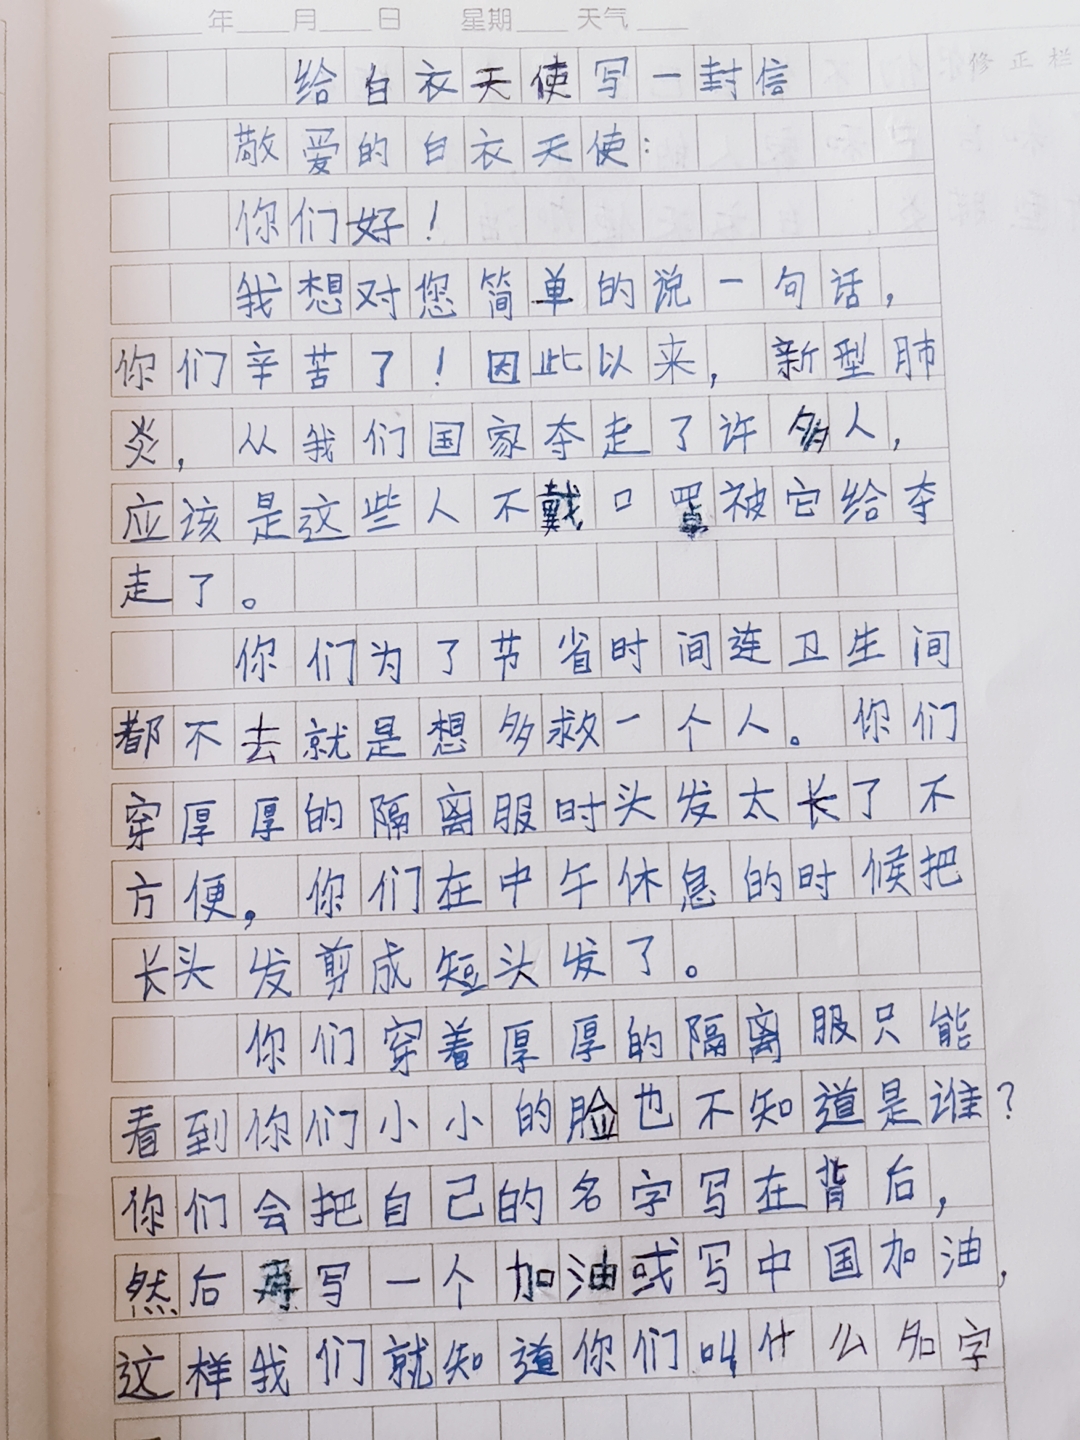 年 月 日 星期 天气
修正栏
给白衣天使写一封信
敬爱的白衣天使:
你们好!
我想对您简单的说一句话,
你们辛苦了!因此以来,新型肺
炎,从我们国家夺走了许多人,
应该是这些人不戴口罩被它给夺
走了。
你们为了节省时间连卫生间
都不去就是想多救一个人。你们
穿厚厚的隔离服时头发太长了不
方便,你们在中午休息的时候把
长头发剪成短头发了。
你们穿着厚厚的隔离服只能
看到你们小小的脸也不知道是谁?
你们会把自己的名字写在背后,
然后再写一个加油或写中国加油,
这样我们就知道你们叫什么名字